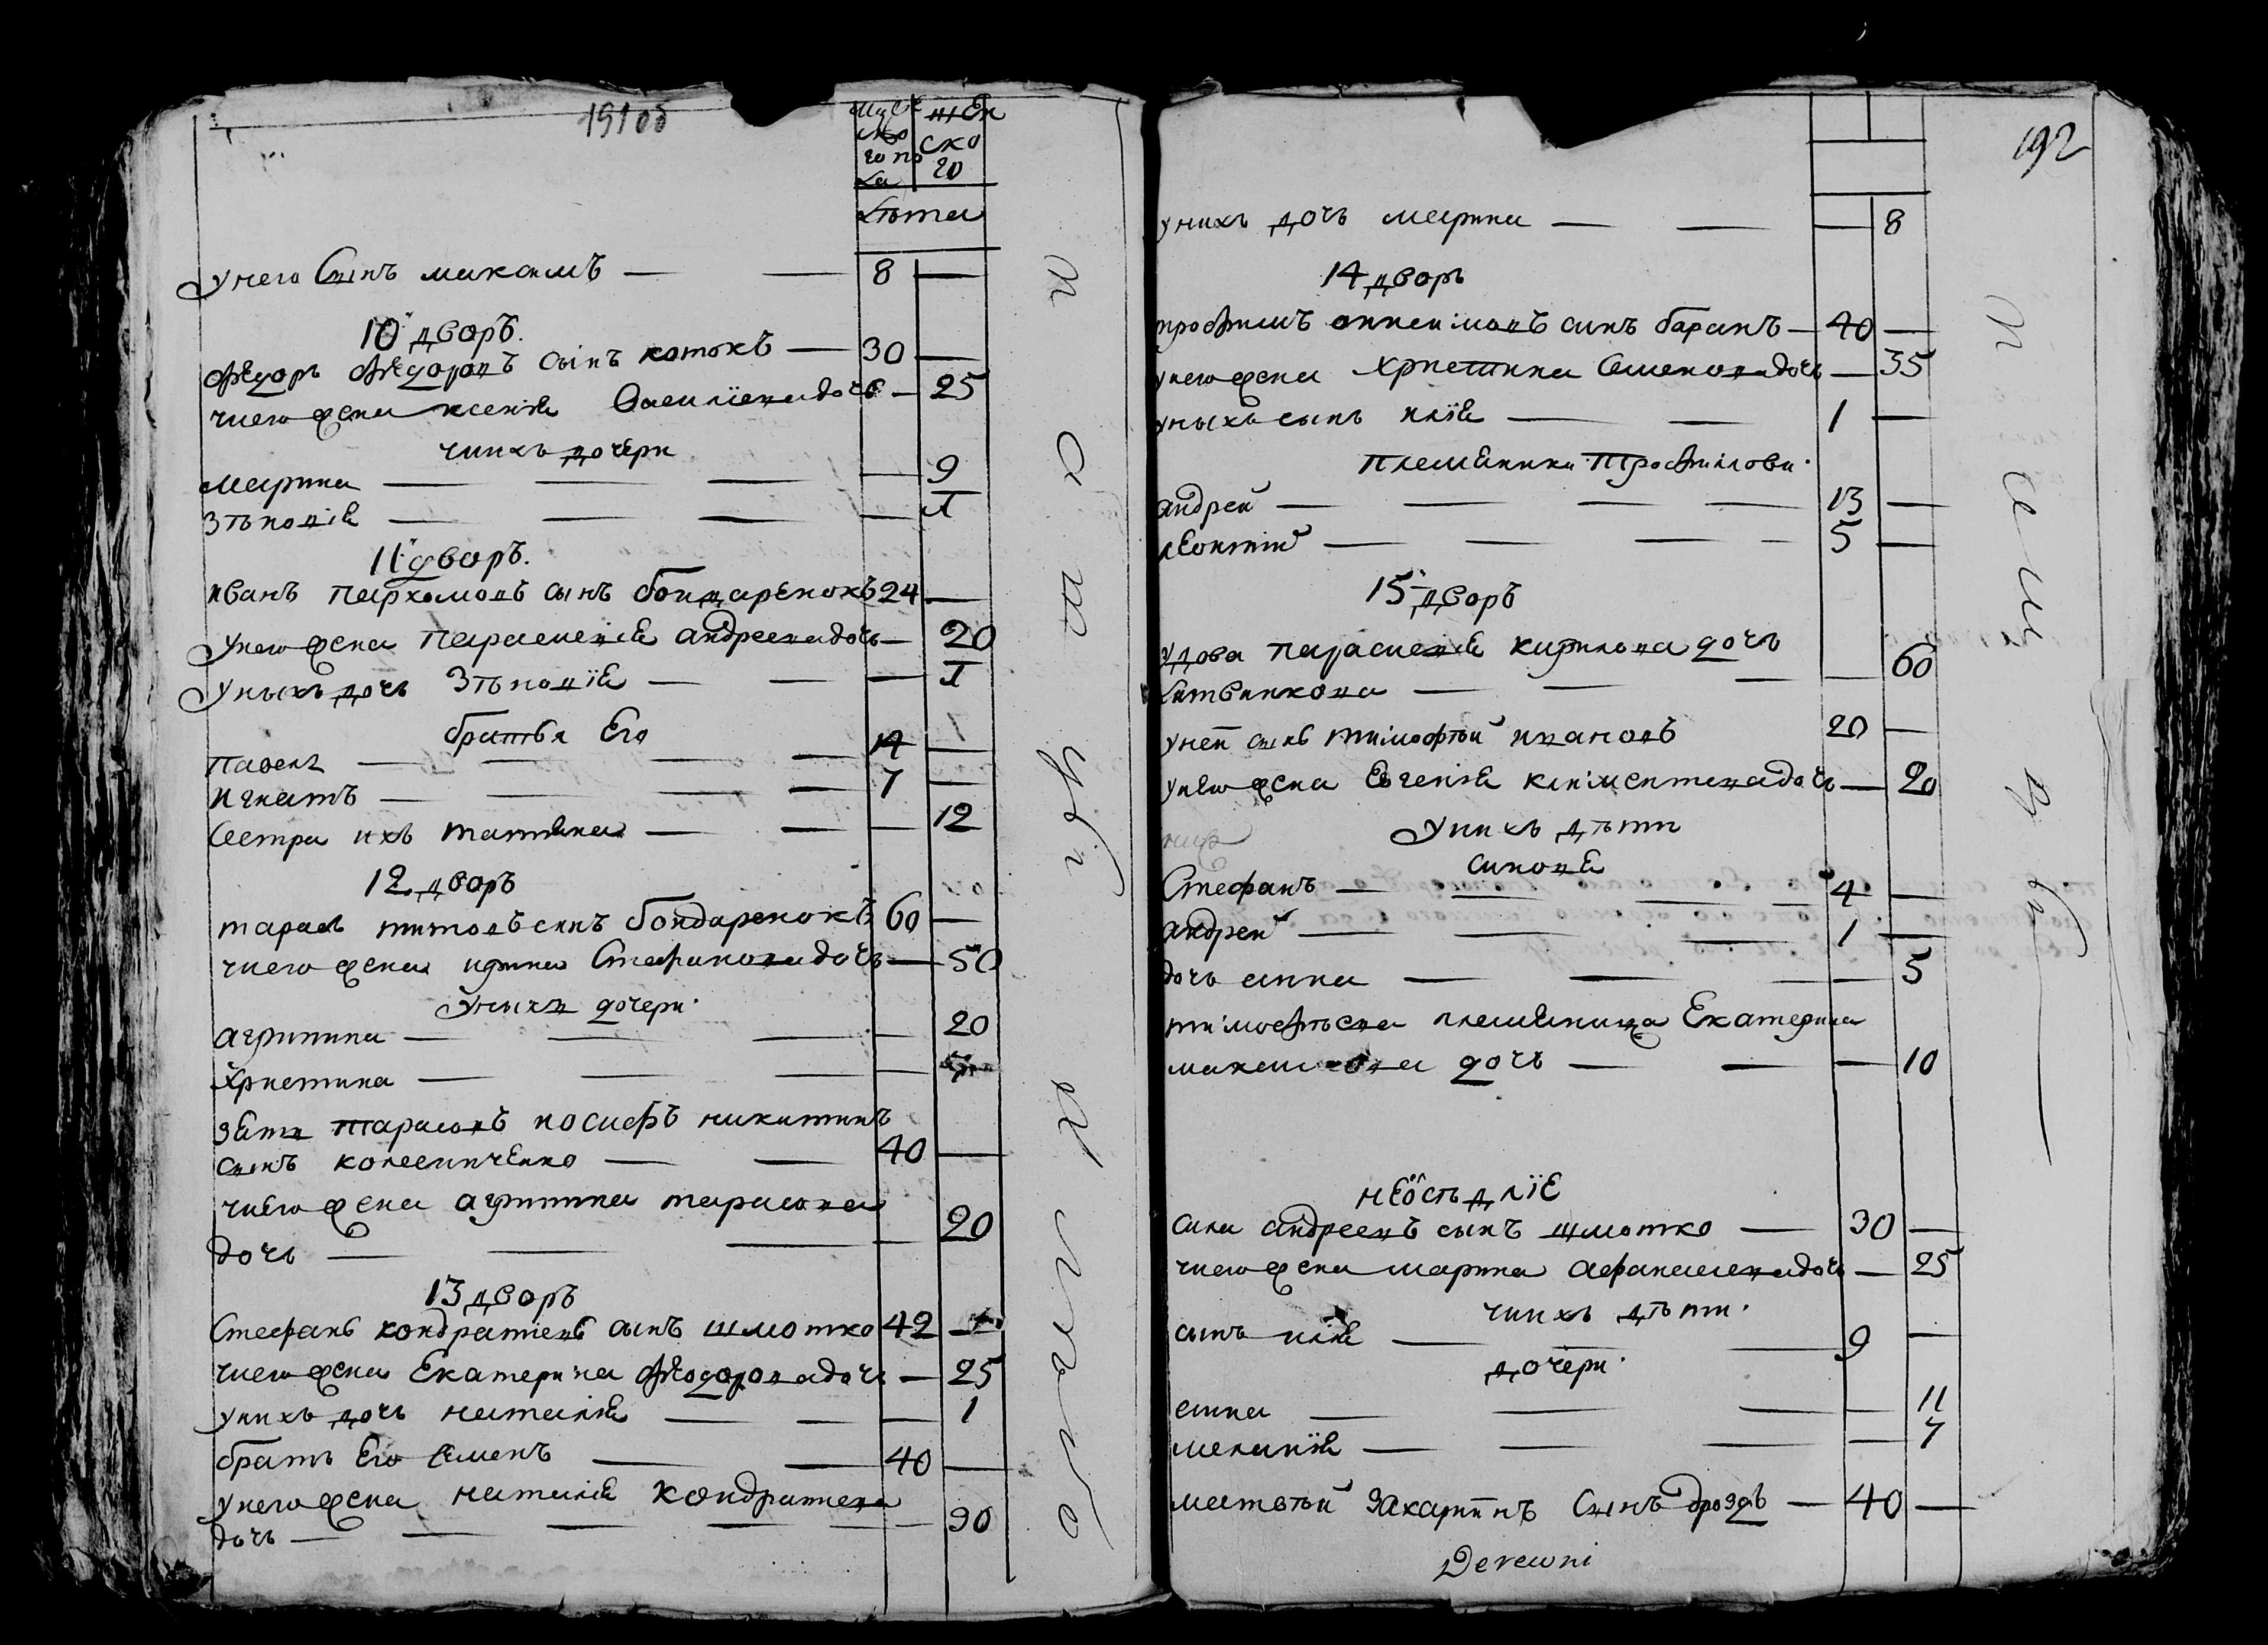 191об
Муск жен
ско ско
го по го
ла
Лѣта
У него Сынъ максимъ — — 8 —
10 дворъ.
Федоръ Федоровъ сынъ котокъ — 30 —
У него жена ксения Василіева дочь — 25
У нихъ дочери
марина — — — — 9
Зѣновія — — — — 1
11 дворъ.
Иванъ пархомовъ сынъ бондаренокъ 24 —
У него жена параскевія андреева дочь — 20
У ныхъ дочь Зѣновія — — — 1
братья Его
Павелъ — — — — 14 —
Игнатъ — — — — 7 —
Сестра ихъ татяна — — — 12
12 дворъ
тарасъ титовъ синъ бондаренокъ 60 —
У него жена ирина Стефанова дочь — 50
У ныхъ дочери
агрипина — — — — 20
Христина — — — —
зять тарасовъ иосифъ никитинъ
сынъ колесниченко — — 40 —
У него жена агрипина тарасова
дочь — — — — 20
13 дворъ
Стефанъ кондратіевъ сынъ шмотко 42 —
У него жена Екатерина Феодорова дочь — 25
У нихъ дочь наталия — — — 1
братъ Его Семенъ — — 40 —
У него жена наталия кондратиева
дочь — — — — — — 30
У нихъ дочь марина — — — 8
192
14 дворъ
трофимъ синъ баранъ — 40 —
У него жена христина Семенова дочь — 35
У ныхъ сынъ илія — — 1 —
Племяники Трофимови
андрей — — — — 13 —
леонтий — — — — 5 —
15 дворъ
удова параскевія кирилова дочь
Литвинкова — — — — 60
У ней синъ тимофѣй ивановъ 20 —
У него жена Евгения климентиева дочь — 20
У нихъ дѣти
синовя
Стефанъ — — — — 4 —
андрей — — — 1 —
дочь анна — — — 5
тимофѣева племяница Екатерина
максимова дочь — — — 10
неосѣдліе
сила андреевъ сынъ шмотко — 30 —
У него жена марина афанасиева дочь — 25
У нихъ дѣти
сынъ илія — — 9 —
дочери
анна — — — — 11
меланія — — — — 7
матвѣй захаринъ Сынъ дроздъ — 40 —
Derewni